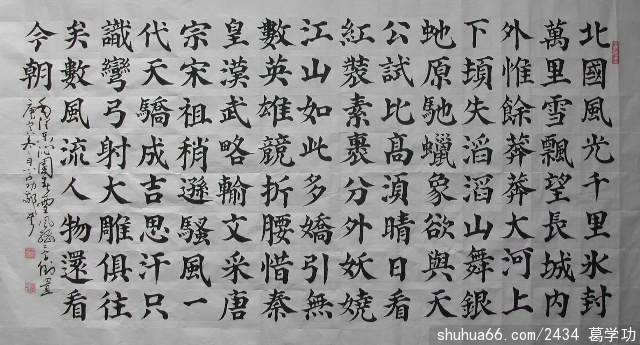 北國風光千里氷封
萬里雪飄望長城内
外惟餘莽莽大河上
下頓失滔滔山舞銀
虵原馳蠟象欲與天
公試比高湏晴日看
紅裝素裹分外妖嬈
江山如此多嬌引無
數英雄競折腰惜秦
皇漢武略輸文采唐
宗宋祖稍遜騷風一
代天驕成吉思汗只
識彎弓射大雕俱往
矣數風流人物還看
今朝
shuhua66.com/2434 葛学功